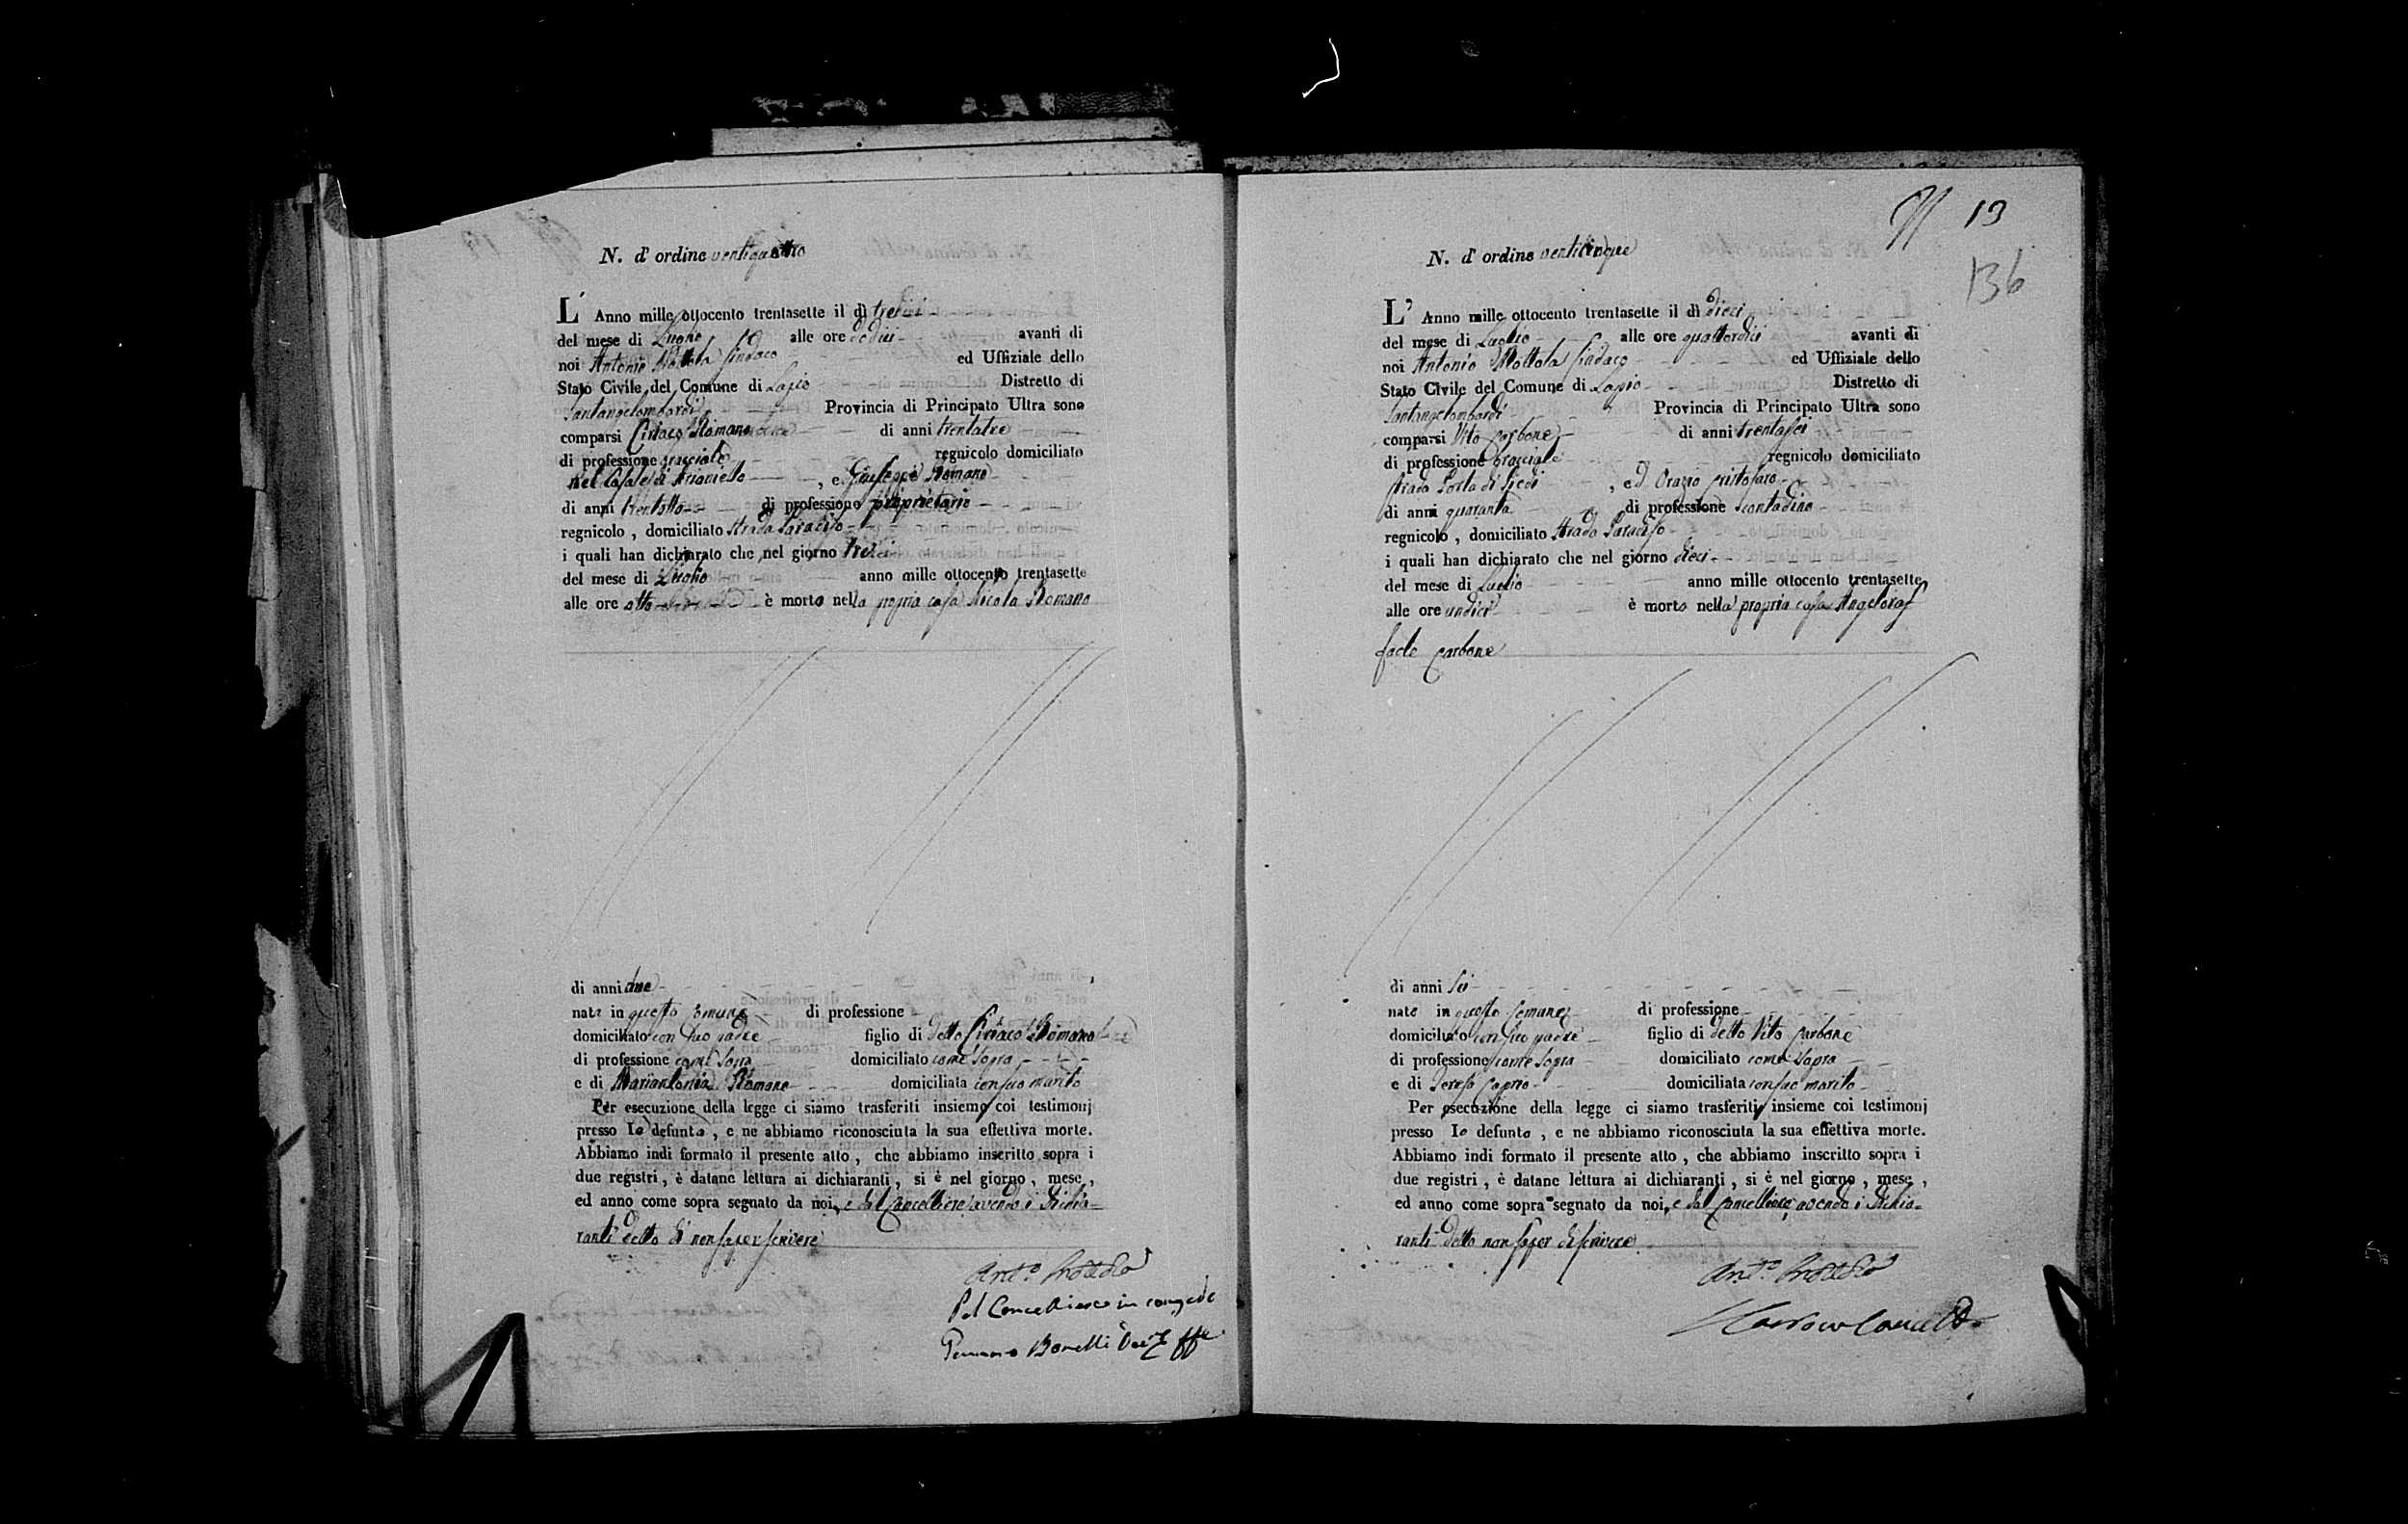 N. d' ordine ventiquattro
L' Anno mille ottocento trentasette il dì tredici
del mese di Luglio alle ore dodici avanti di
noi Antonio Mottola Sindaco ed Uffiziale dello
Stato Civile del Comune di Lapio Distretto di
Santangelombardi Provincia di Principato Ultra sono
comparsi Ciriaco Romano di anni trentatre
di professione bracciale regnicolo domiciliato
nel Casale di Arianiello , e Giuseppe Romano
di anni trentotto di professione proprietario
regnicolo , domiciliato strada Paradiso
i quali han dichiarato che nel giorno tredici
del mese di Luglio anno mille ottocento trentasette
alle ore otto è morto nella propria casa Nicola Romano
di anni due
nato in questo Comune di professione
domiciliato con suo padre figlio di detto Ciriaco Romano
di professione come sopra domiciliato come sopra
e di Mariantonia Romano domiciliata con suo marito
Per esecuzione della legge ci siamo trasferiti insieme coi testimonj
presso lo defunto , e ne abbiamo riconosciuta la sua effettiva morte.
Abbiamo indi formato il presente atto , che abbiamo inscritto sopra i
due registri , è datane lettura ai dichiaranti , si è nel giorno , mese ,
ed anno come sopra segnato da noi, e dal Cancelliere avendo i dichia=
ranti detto di non saper scrivere
Ant.o Mottola
Pel Cancelliere in congedo
Bonelli
13
136
N. d' ordine venticinque
L' Anno mille ottocento trentasette il dì dieci
del mese di Luglio alle ore quattordici avanti di
noi Antonio Mottola Sindaco ed Uffiziale dello
Stato Civile del Comune di Lapio Distretto di
Santangelombardi Provincia di Principato Ultra sono
comparsi Vito Carbone di anni trentasei
di professione bracciale regnicolo domiciliato
strada Porta di , ed Orazio Cristofaro
di anni quaranta di professione contadino
regnicolo , domiciliato strada Paradiso
i quali han dichiarato che nel giorno dieci
del mese di Luglio anno mille ottocento trentasette
alle ore undici è morto nella propria casa Angeloraf
faele Carbone
di anni sei
nato in questo Comune di professione
domiciliato con suo padre figlio di detto Vito Carbone
di professione come sopra domiciliato come sopra
e di Teresa Caprio domiciliata con suo marito
Per esecuzione della legge ci siamo trasferiti insieme coi testimonj
presso lo defunto , e ne abbiamo riconosciuta la sua effettiva morte.
Abbiamo indi formato il presente atto , che abbiamo inscritto sopra i
due registri , è datane lettura ai dichiaranti , si è nel giorno , mese ,
ed anno come sopra segnato da noi, e dal Cancelliere avendo i dichia=
ranti detto non saper di scrivere
Ant.o Mottola